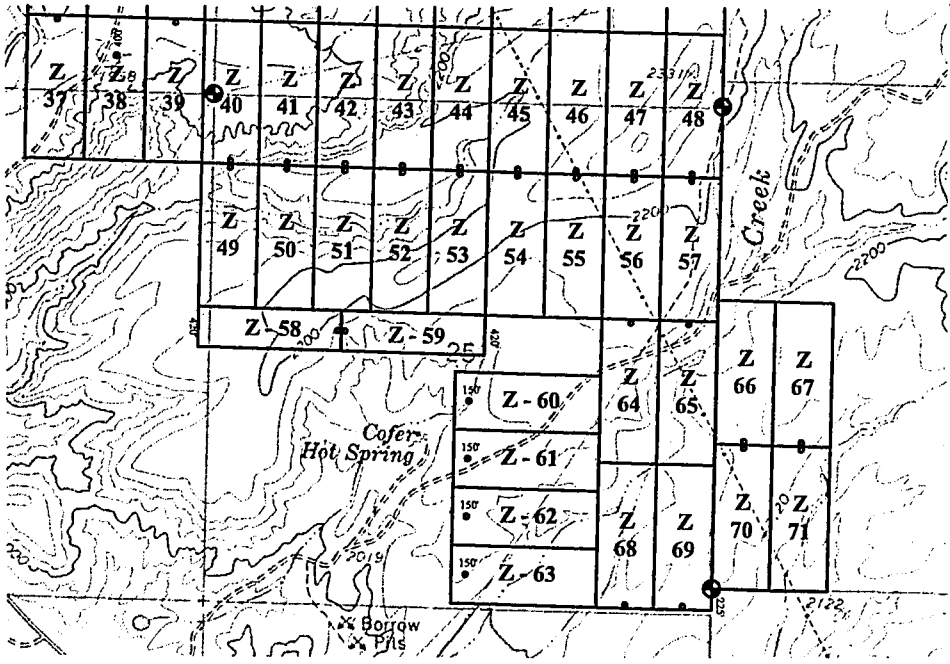 Z 37
Z 38
Z 39
Z 40
Z 41
Z 42
Z 43
Z 44
Z 45
Z 46
Z 47
Z 48
400'
200
2331
Z 49
Z 50
Z 51
Z 52
Z 53
Z 54
Z 55
Z 56
Z 57
2200
Creek
2200
420'
Z - 58
Z - 59
420'
2200
25
Z 64
Z 65
Z 66
Z 67
150'
Z - 60
Cofer
Hot Spring
150'
Z - 61
150'
Z - 62
150'
Z - 63
Z 68
Z 69
Z 70
Z 71
20
2019
225'
2122
Borrow
Pits